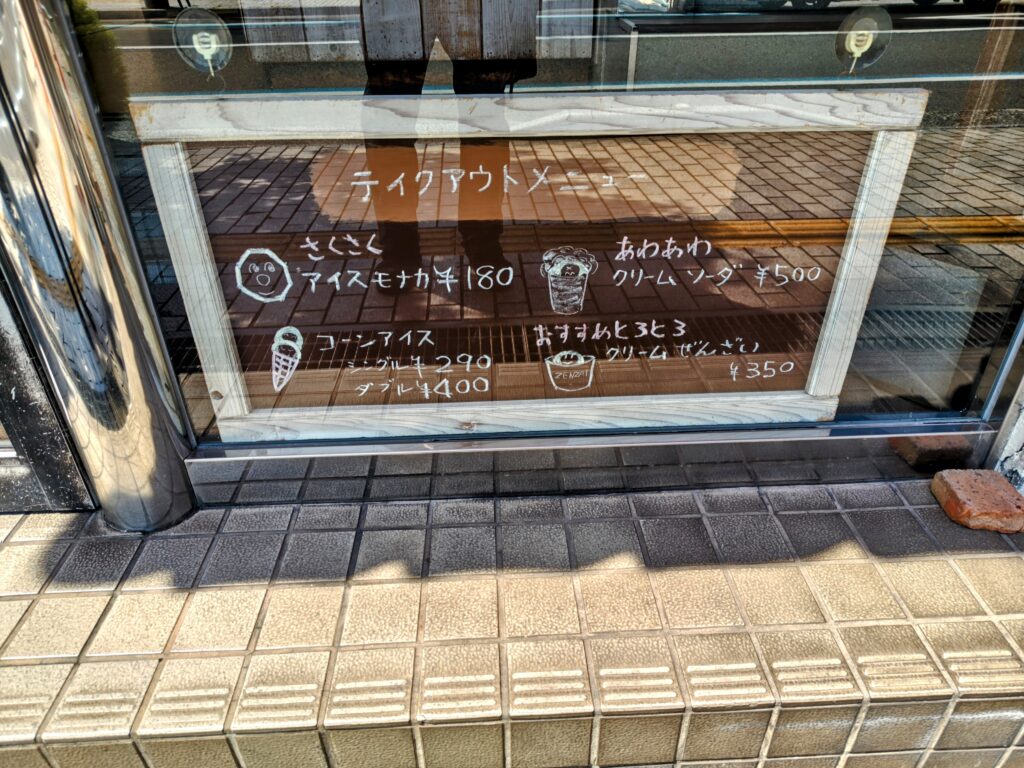 テイクアウトメニュー
さくさく
アイスモナカ ¥180
コーンアイス
シングル ¥290
ダブル ¥400
あわあわ
クリームソーダ ¥500
おすすめとろとろ
クリームぜんざい
ZENZAI
¥350